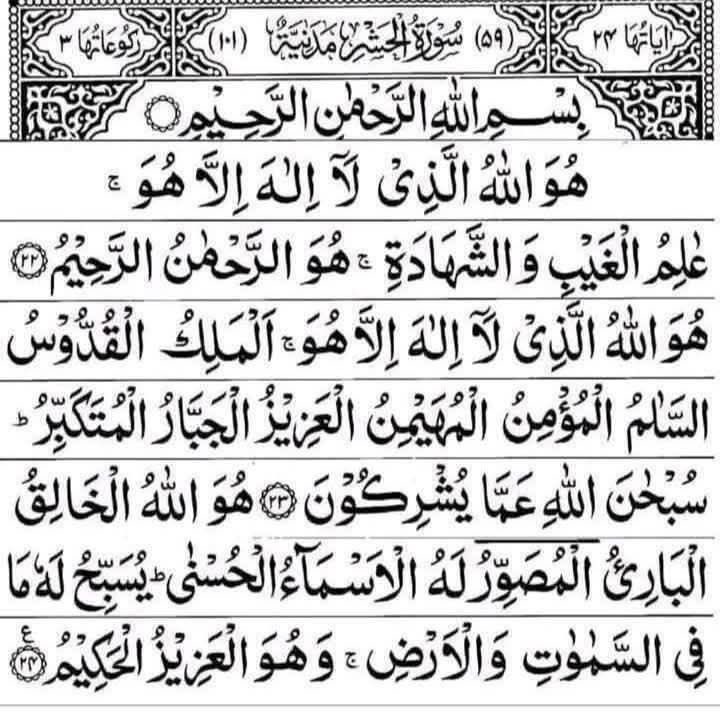 اٰيَاتُهَا ٢٤ (٥٩) سُوْرَةُ الْحَشْرِ مَدَنِيَّةٌ (١٠١) رُكُوْعَاتُهَا ٣
بِسْمِ اللّٰهِ الرَّحْمٰنِ الرَّحِيْمِ
هُوَ اللّٰهُ الَّذِىْ لَآ اِلٰهَ اِلَّا هُوَ ۚ
عٰلِمُ الْغَيْبِ وَالشَّهَادَةِ ۚ هُوَ الرَّحْمٰنُ الرَّحِيْمُ ٢٢
هُوَ اللّٰهُ الَّذِىْ لَآ اِلٰهَ اِلَّا هُوَ ۚ اَلْمَلِكُ الْقُدُّوْسُ
السَّلٰمُ الْمُؤْمِنُ الْمُهَيْمِنُ الْعَزِيْزُ الْجَبَّارُ الْمُتَكَبِّرُ ؕ
سُبْحٰنَ اللّٰهِ عَمَّا يُشْرِكُوْنَ ٢٣ هُوَ اللّٰهُ الْخَالِقُ
الْبَارِئُ الْمُصَوِّرُ لَهُ الْاَسْمَآءُ الْحُسْنٰى ؕ يُسَبِّحُ لَهٗ مَا
فِى السَّمٰوٰتِ وَالْاَرْضِ ۚ وَهُوَ الْعَزِيْزُ الْحَكِيْمُ ٢٤ ع